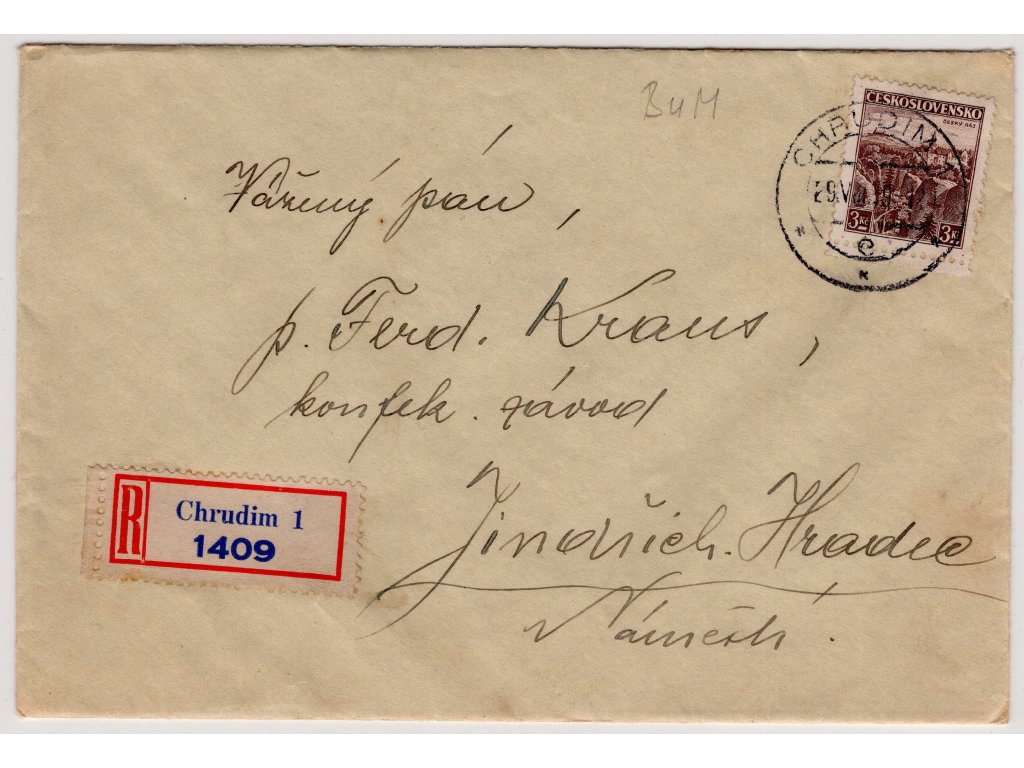 BuM
ČESKOSLOVENSKO
ČESKÝ RÁJ
3 Kč 3 Kč
CHRUDIM 1
C
Vážený pán,
p. Ferd. Kraus,
konfek. závod
Jindřich. Hradec
Náměstí.
R
Chrudim 1
1409